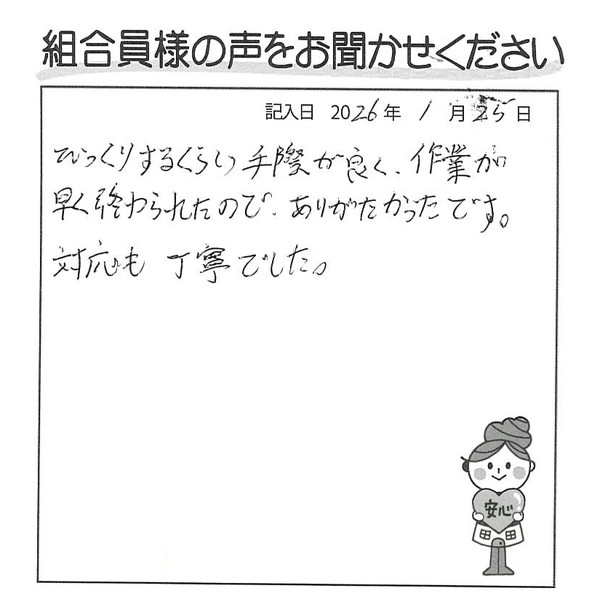 組合員様の声をお聞かせください
記入日 2026年 1月25日
びっくりするくらい手際が良く、作業が
早く終わられたので、ありがたかったです。
対応も丁寧でした。
安心